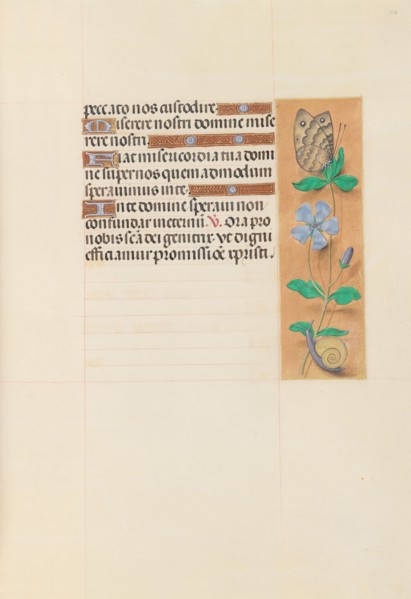 peccato nos custodire.
Miserere nostri domine mise
rere nostri.
Fiat misericordia tua domi
ne super nos quemadmodum
speravimus in te.
In te domine speravi non
confundar in eternũ. V. Ora pro
nobis scã dei genitrix. Vt digni
efficiamur promissiõe xpristi.